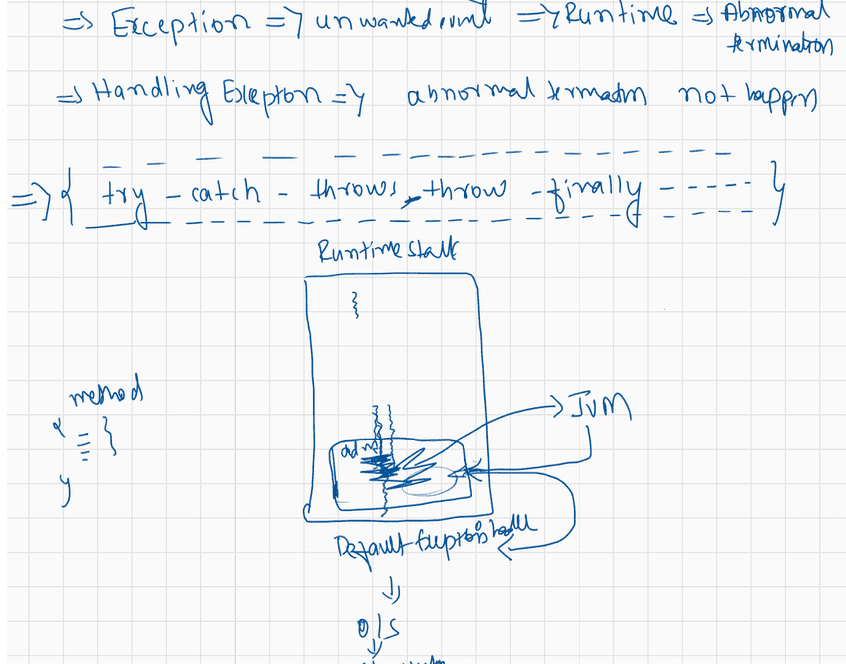 => Exception => unwanted event => Runtime => Abnormal
termination
=> Handling Exception => abnormal termatn not happen
=> { try - catch - throws, throw - finally ----- }
Runtime Stack
method
{ }
}
JVM
Default Exception
O/S